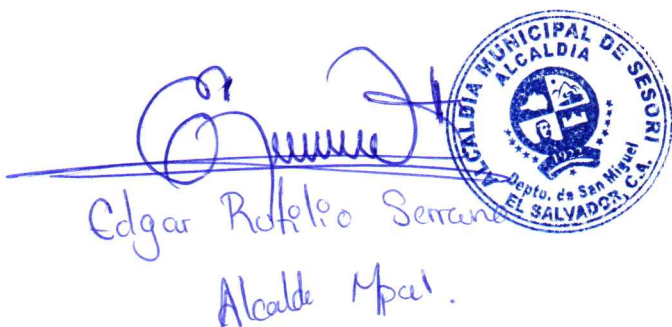 ALCALDIA MUNICIPAL DE SESORI
ALCALDIA
Depto. de San Miguel
EL SALVADOR, C.A.
Edgar Rutilio Serrano
Alcalde Mpal.